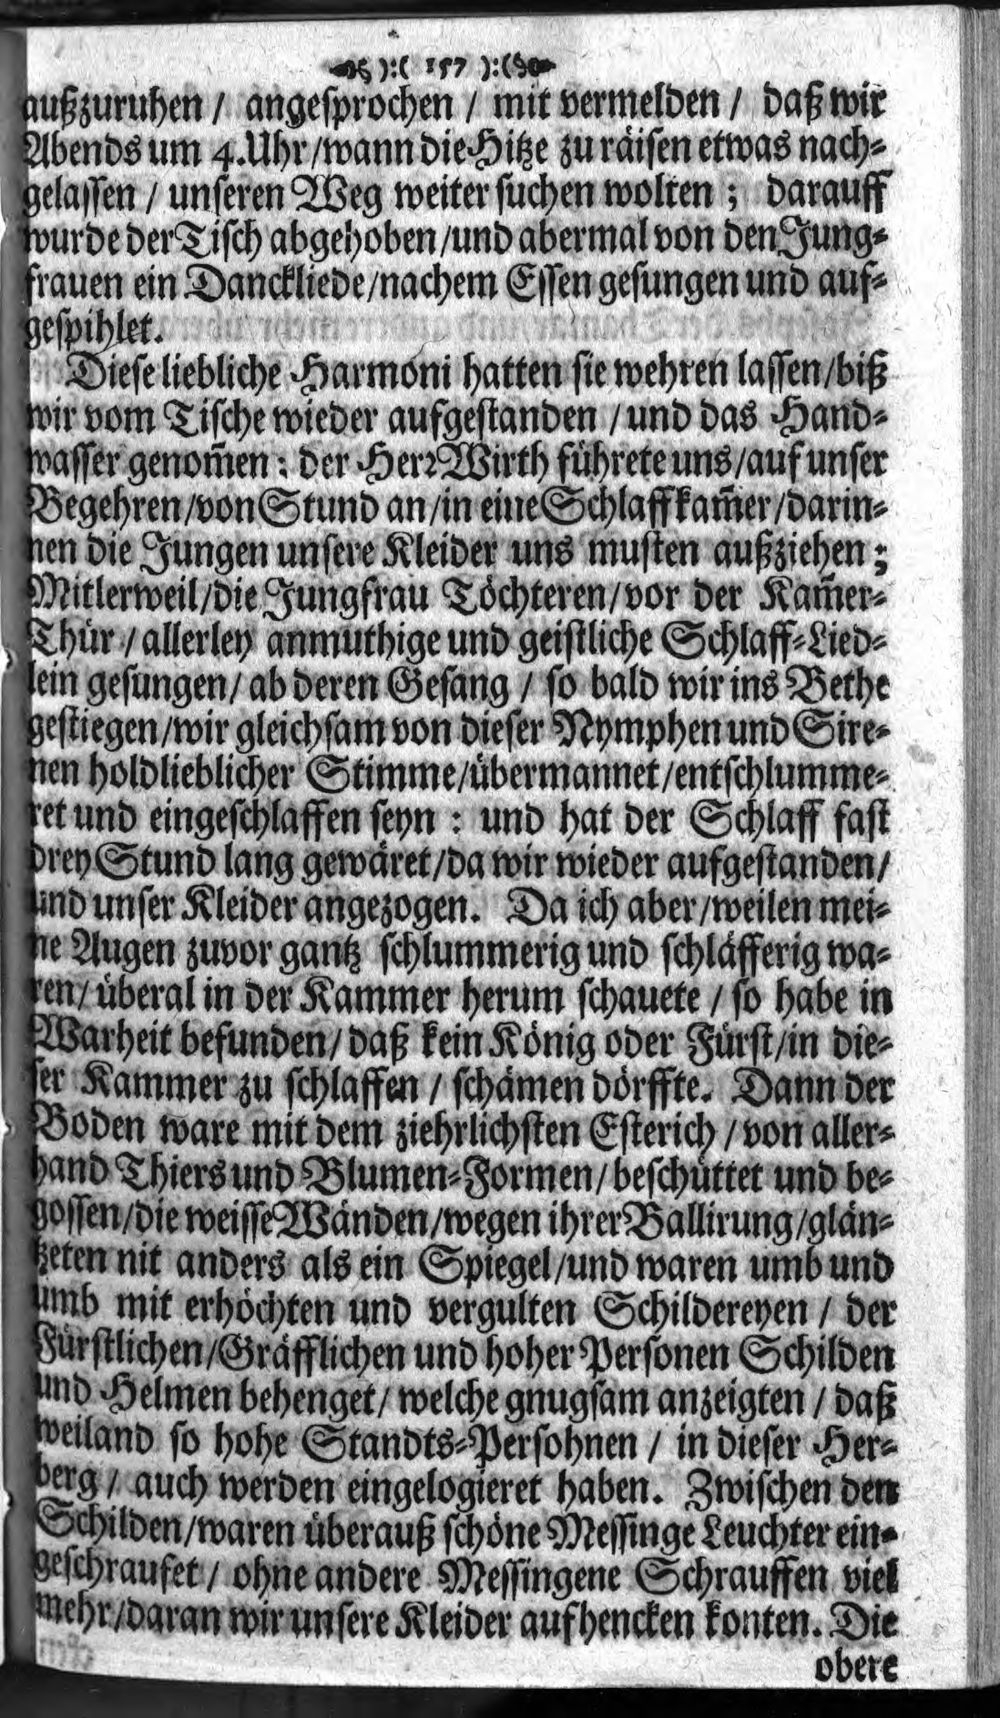 ):( 157 ):(
außzuruhen / angesprochen / mit vermelden / daß wir
Abends um 4. Uhr/wann die Hitze zu räisen etwas nach-
gelassen / unseren Weg weiter suchen wolten ; darauff
wurde der Tisch abgehoben/und abermal von den Jung-
frauen ein Danckliede/nachem Essen gesungen und auf-
gespihlet.
Diese liebliche Harmoni hatten sie wehren lassen/biß
wir vom Tische wieder aufgestanden /und das Hand-
wasser genom̃en : der Herꝛ Wirth führete uns/auf unser
Begehren/von Stund an/in eine Schlaffkam̃er/darin-
nen die Jungen unsere Kleider uns musten außziehen ;
Mitlerweil/die Jungfrau Töchteren/vor der Kam̃er-
Thür / allerley anmuthige und geistliche Schlaff-Lied-
lein gesungen/ ab deren Gesang / so bald wir ins Bethe
gestiegen/wir gleichsam von dieser Nymphen und Sire-
nen holdlieblicher Stimme/übermannet/entschlumme-
ret und eingeschlaffen seyn : und hat der Schlaff fast
drey Stund lang gewäret/da wir wieder aufgestanden/
und unser Kleider angezogen. Da ich aber/weilen mei-
ne Augen zuvor gantz schlummerig und schläfferig wa-
ren/ überal in der Kammer herum schauete / so habe in
Warheit befunden/ daß kein König oder Fürst/in die-
ser Kammer zu schlaffen / schämen dörffte. Dann der
Boden ware mit dem ziehrlichsten Esterich / von aller-
hand Thiers und Blumen-Formen/ beschüttet und be-
gossen/die weisse Wänden/wegen ihrer Ballirung/glän-
tzeten nit anders als ein Spiegel/und waren umb und
umb mit erhöchten und vergulten Schildereyen / der
Fürstlichen/Gräfflichen und hoher Personen Schilden
und Helmen behenget/ welche gnugsam anzeigten / daß
weiland so hohe Standts-Persohnen / in dieser Her-
berg / auch werden eingelogieret haben. Zwischen den
Schilden/waren überauß schöne Messinge Leuchter ein-
geschraufet / ohne andere Messingene Schrauffen viel
mehr/daran wir unsere Kleider aufhencken konten. Die
obere